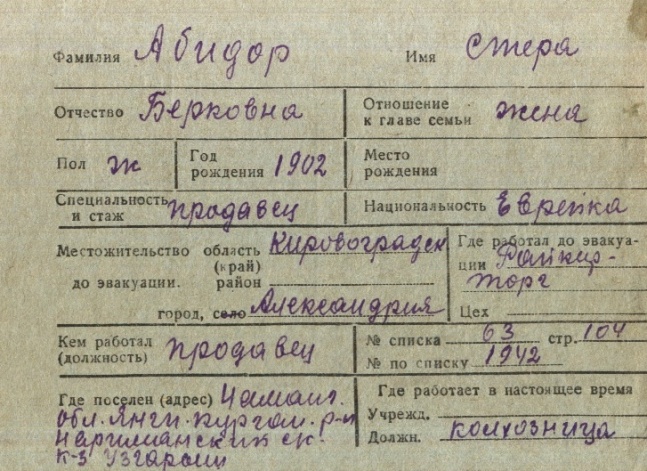 Фамилия Абидор Имя Стера
Отчество Берковна Отношение к главе семьи жена
Пол ж Год рождения 1902 Место рождения
Специальность и стаж продавец Национальность Еврейка
Местожительство область Кировоградск Где работал до эвакуа-
(край) ции
до эвакуации. район торг
город, село Александрия Цех
Кем работал (должность) продавец № списка 63 стр. 104
№ по списку 1942
Где поселен (адрес) Наманг. Где работает в настоящее время
обл. Янги-Курган. р-н Учрежд.
Нариманский с/с. Должн. колхозница
к-з